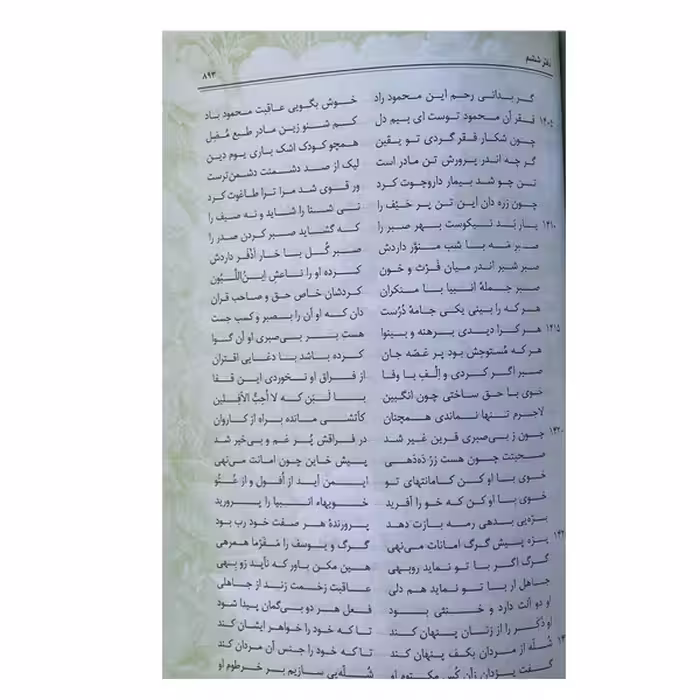 دفتر ششم
۸۹۳
گر بدانی رحم این محمود راد خوش بگویی عاقبت محمود باد
۱۴۰۵ فقر آن محمود توست ای بیم دل کم شنو زین مادر طبع مُضِل
چون شکار فقر گردی تو یقین همچو کودک اشک باری یوم دین
گر چه اندر پرورش تن مادر است لیک از صد دشمنت دشمن‌ترست
تن چو شد بیمار داروجوت کرد ور قوی شد مرا ترا طاغوت کرد
چون زره دان این تن پر حَیْف را نی شتا را شاید و نه صیف را
۱۴۱۰ یار بَد نیکوست بهر صبر را که گشاید صبر کردن صدر را
صبرِ مَه با شب منوّر داردش صبرِ گُل با خار اَذْفَر داردش
صبر شیر اندر میان فَرْث و خون کرده او را ناعشِ اِبنُ‌اللَّبُون
صبر جملهٔ انبیا با منکران کردشان خاص حق و صاحب قران
هر که را بینی یکی جامهٔ دُرُست دان که او آن را بصبر و کسب جست
۱۴۱۵ هر کرا دیدی برهنه و بینوا هست بر بی‌صبری او آن گوا
هر که مُستوحِش بود پر غصّه جان کرده باشد با دغایی اقتران
صبر اگر کردی و اِلْفِ با وفا از فراق او نخوردی این قفا
خوی با حق ساختی چون انگبین با لَبَن که لا اُحِبُّ الآفِلین
لاجرم تنها نماندی همچنان کآتشی مانده براه از کاروان
۱۴۲۰ چون ز بی‌صبری قرین غیر شد در فراقش پُر غم و بی‌خیر شد
صحبتت چون هست زرّ ده‌دهی پیش خاین چون امانت می‌نهی
خوی با او کن کامانتهای تو ایمن آید از اُفول و از عُتُو
خوی با او کن که خو را آفرید خویهاء انبیا را پرورید
بَرّه‌یی بدهی رمه بازت دهد پرورندهٔ هر صفت خود رب بود
برّه پیش گرگ امانات می‌نهی گرگ و یوسف را مَفَرْما همرهی
گرگ اگر با تو نماید روبهی هین مکن باور که ناید زو بِهی
جاهل ار با تو نماید هم دلی عاقبت زخمت زند از جاهلی
او دو آلت دارد و خنثی بود فعل هر دو بی‌گمان پیدا شود
او ذَکَر را از زنان پنهان کند تا که خود را خواهر ایشان کند
شُلّه از مردان بکف پنهان کند تا که خود را جنس آن مردان کند
گفت یزدان زآن کُسِ مکتوم او شُلّه‌یی سازیم بر خرطوم او